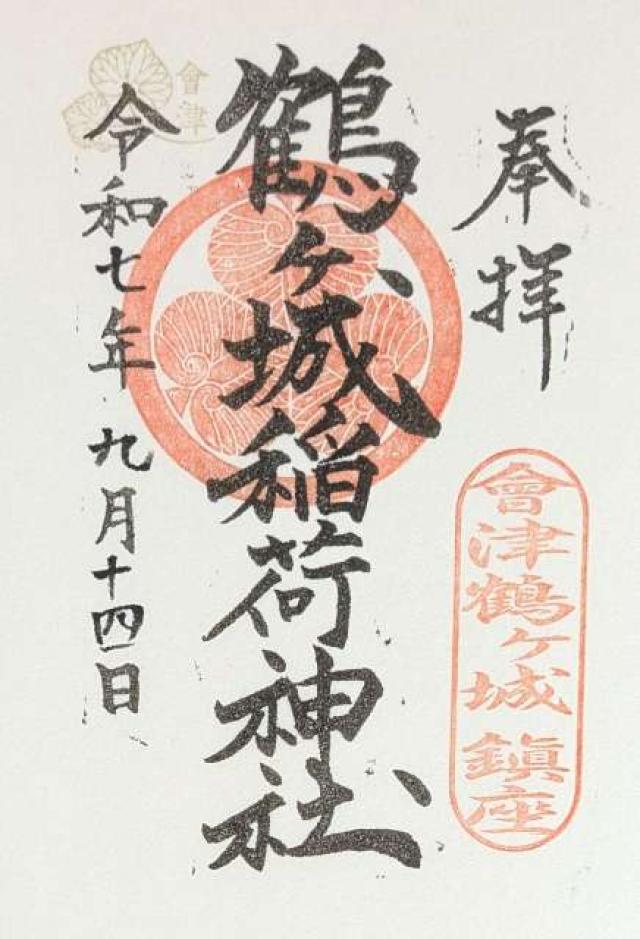 奉拝
會津鶴ヶ城鎮座
鶴ヶ城稲荷神社
會津
令和七年九月十四日